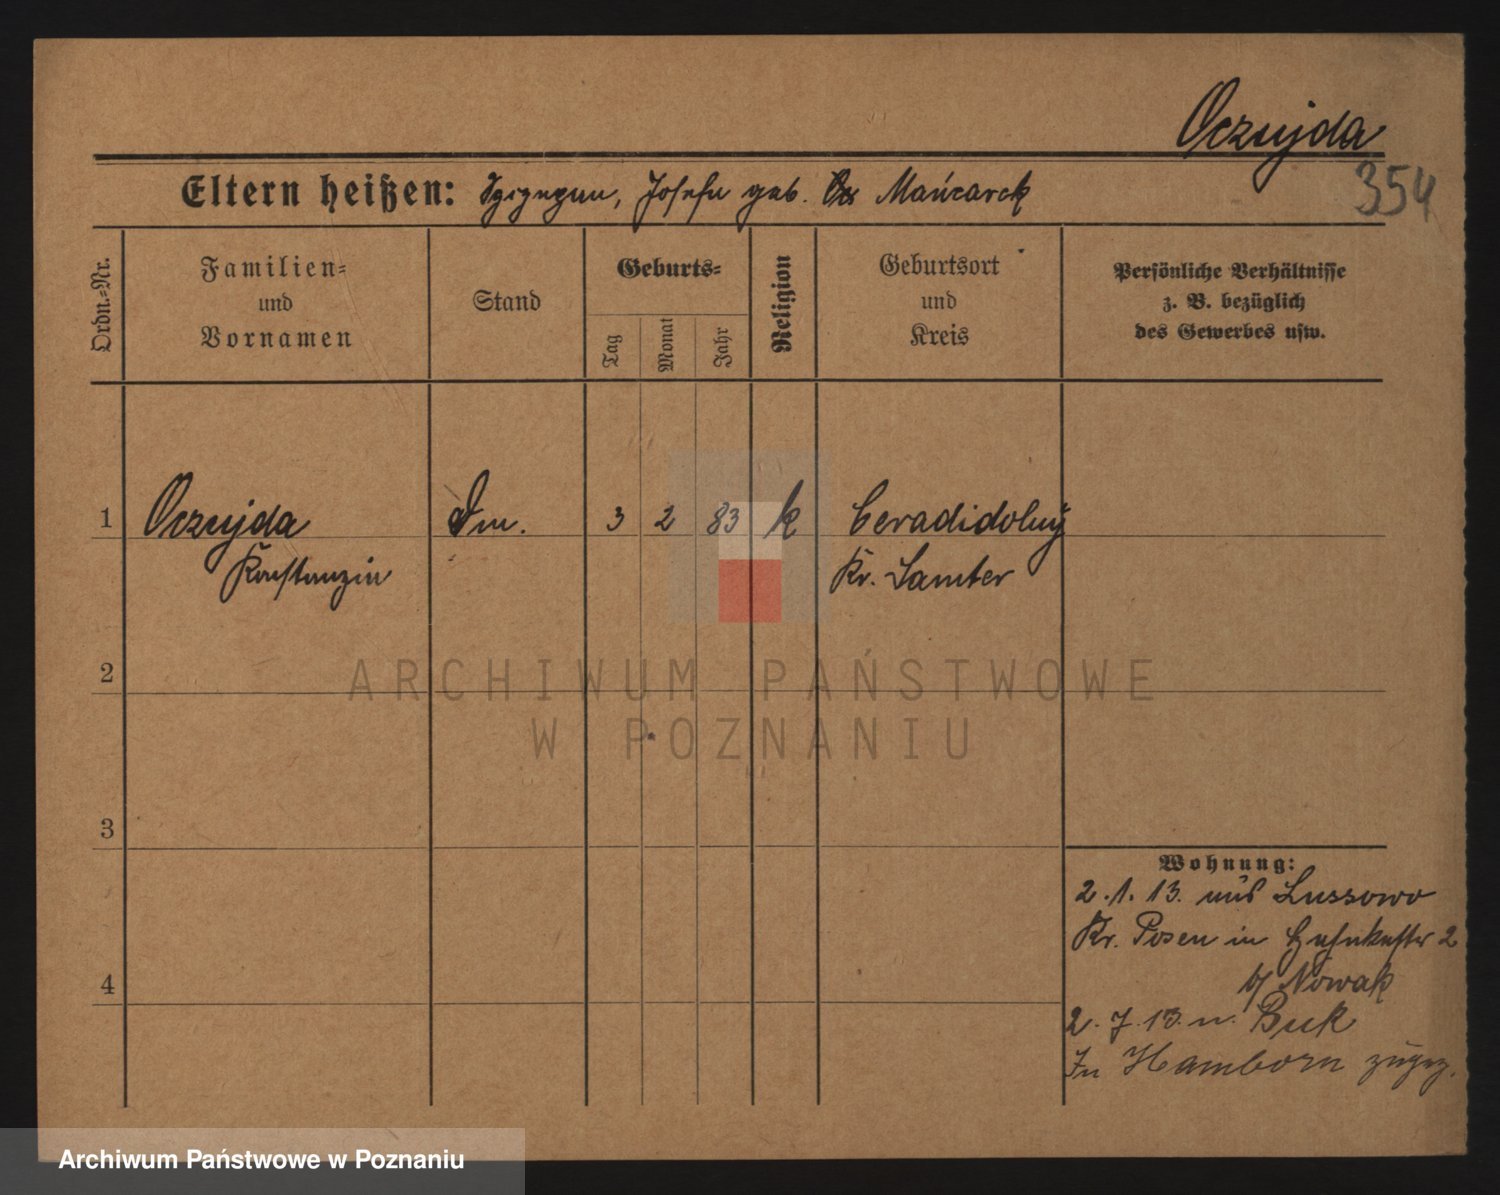 Oczujda
354
Eltern heißen: Szczepan, Josefa geb. Mańczarek
Ordn.-Nr.
Familien-
und
Vornamen
Stand
Geburts-
Tag
Monat
Jahr
Religion
Geburtsort
und
Kreis
Persönliche Verhältnisse
z. B. bezüglich
des Gewerbes usw.
1 Oczujda Dm. 3 2 83 k Ceradidolny
Konstanzia Kr. Samter
2
3
4
Wohnung:
2.1.13. aus Lussowo
Kr. Posen in 2
b/ Nowak
2.7.13. n. Buk
In Hamborn zugez.
ARCHIWUM PAŃSTWOWE
W POZNANIU
Archiwum Państwowe w Poznaniu